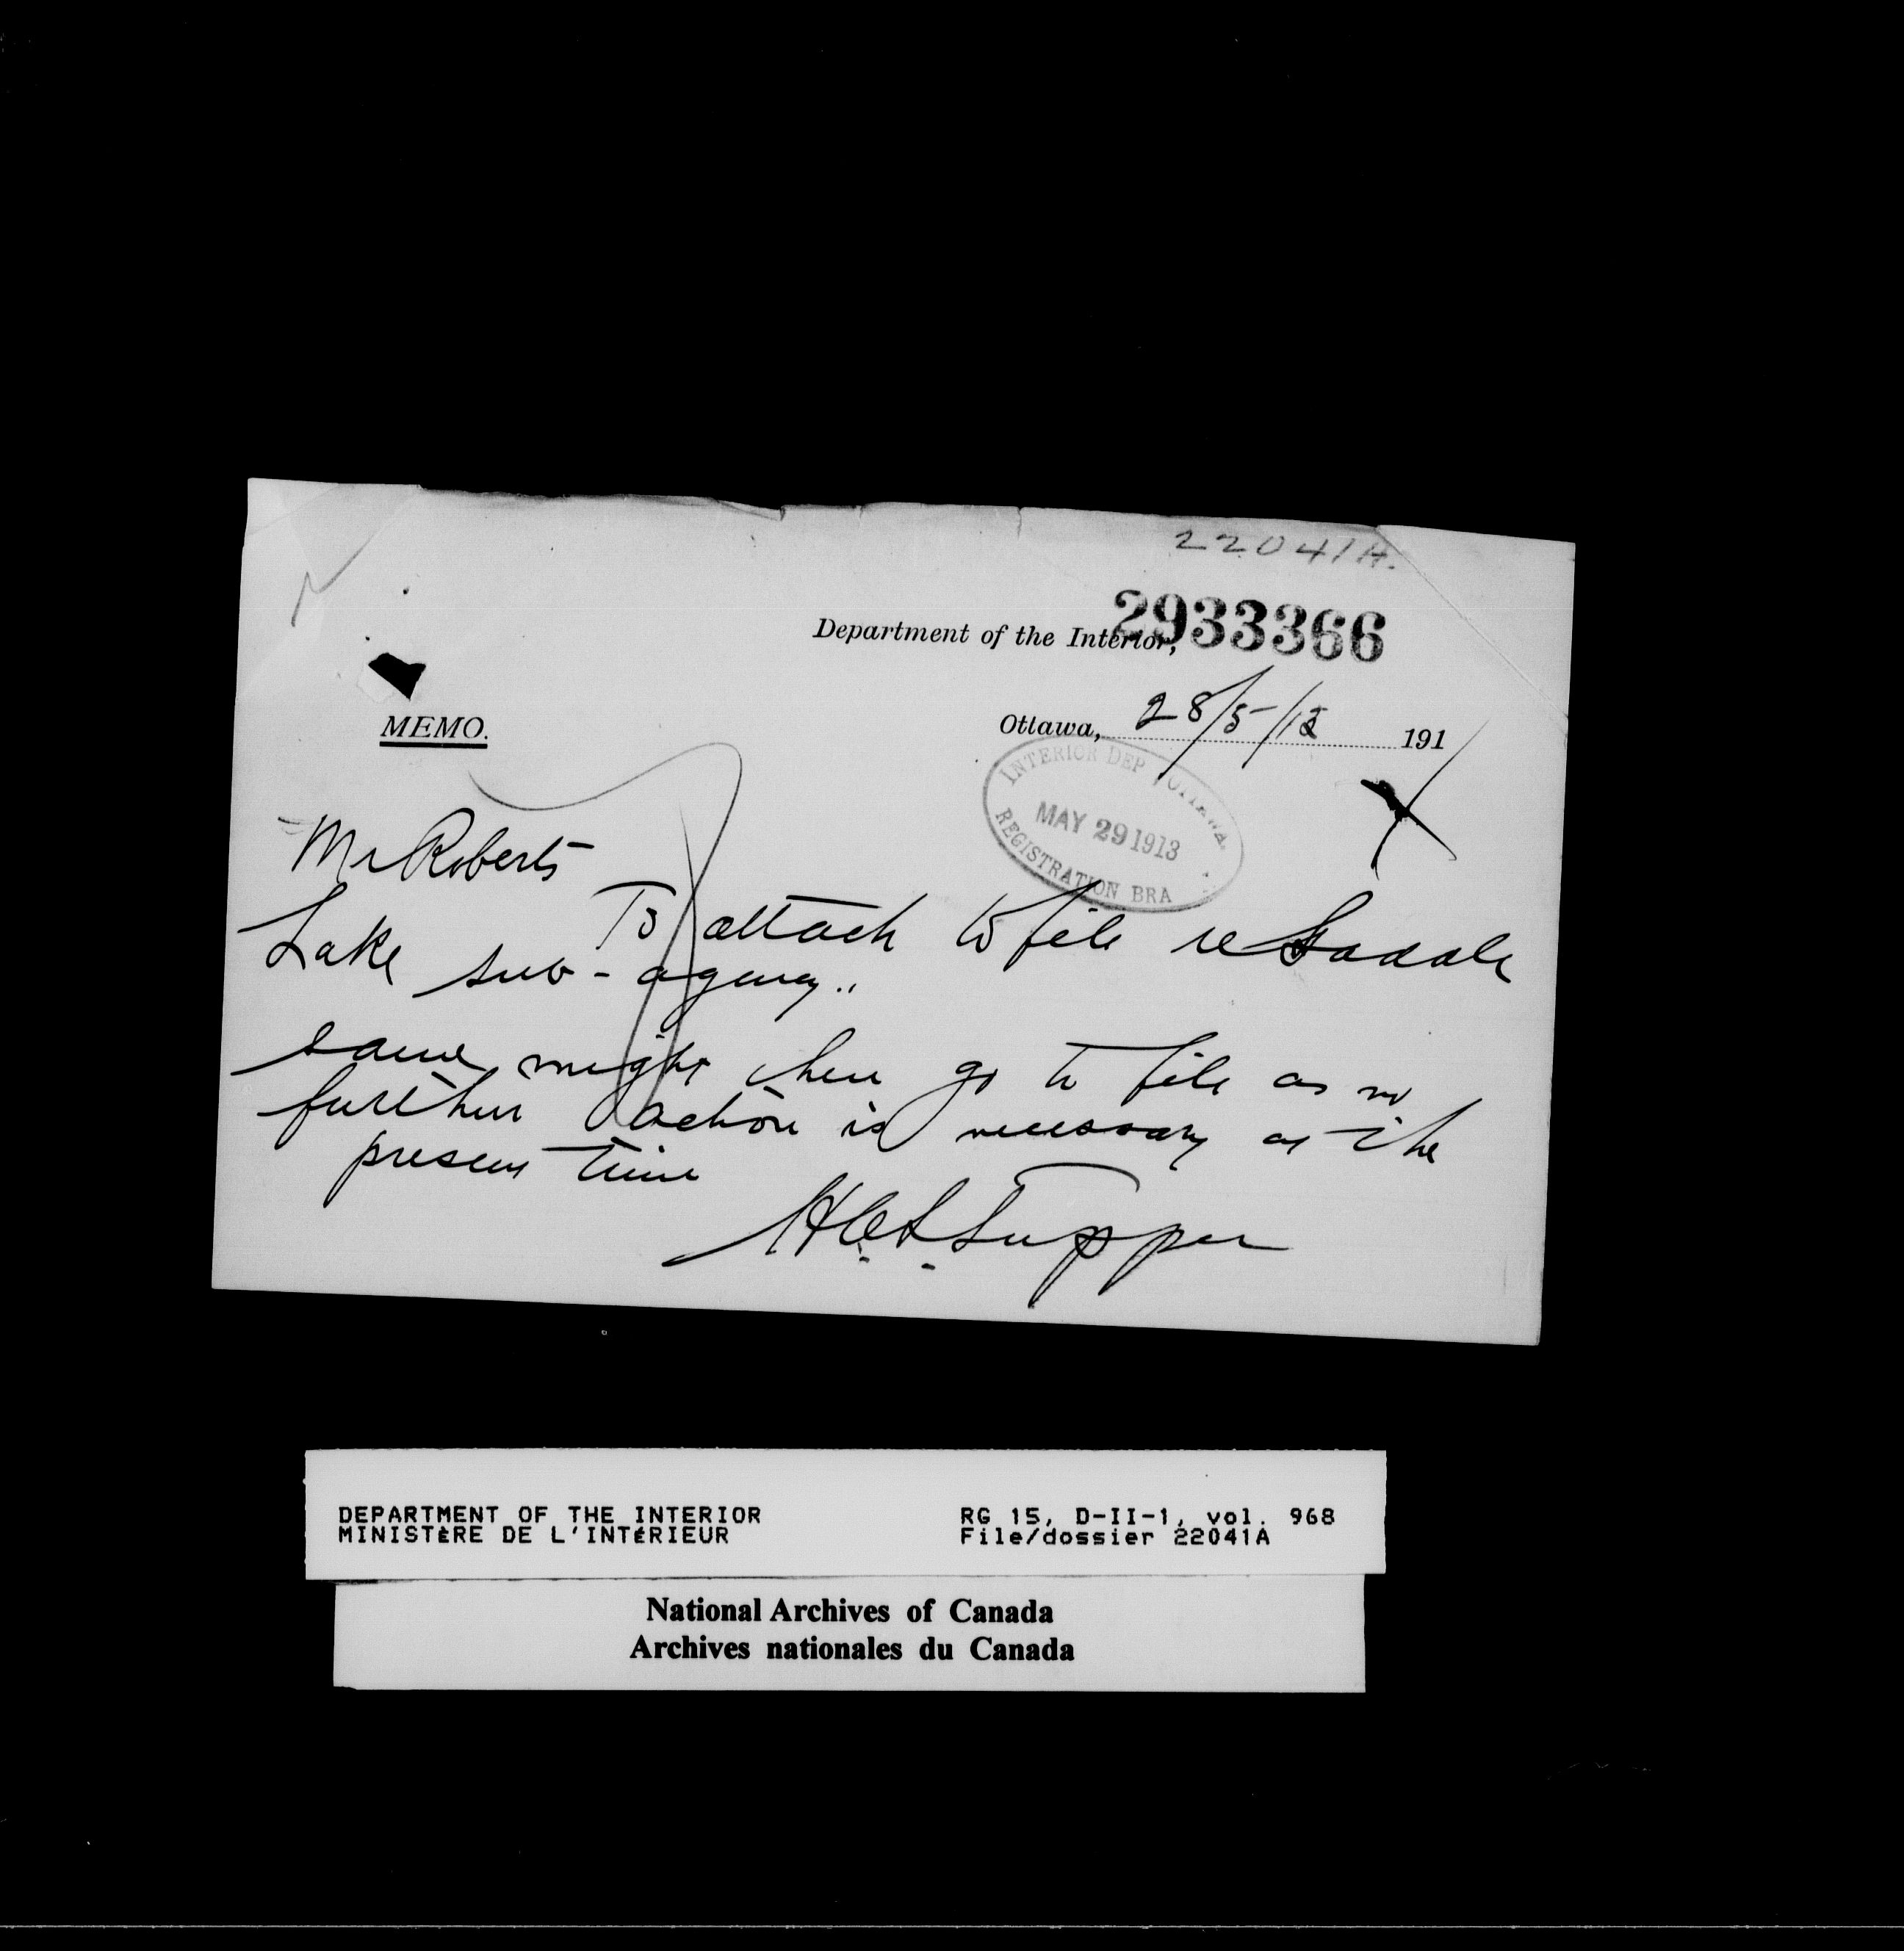 22041A.
2933366
Department of the Interior,
MEMO.
Ottawa, 28/5/13 191
INTERIOR DEP OTTAWA
MAY 29 1913
REGISTRATION BRA
Mr Roberts
To attach to file re Saddle
Lake sub-agency..
same might then go to file as no
further action is necessary at the
present time
Tupper
DEPARTMENT OF THE INTERIOR
MINISTÈRE DE L'INTÉRIEUR
RG 15, D-II-1, vol. 968
File/dossier 22041A
National Archives of Canada
Archives nationales du Canada